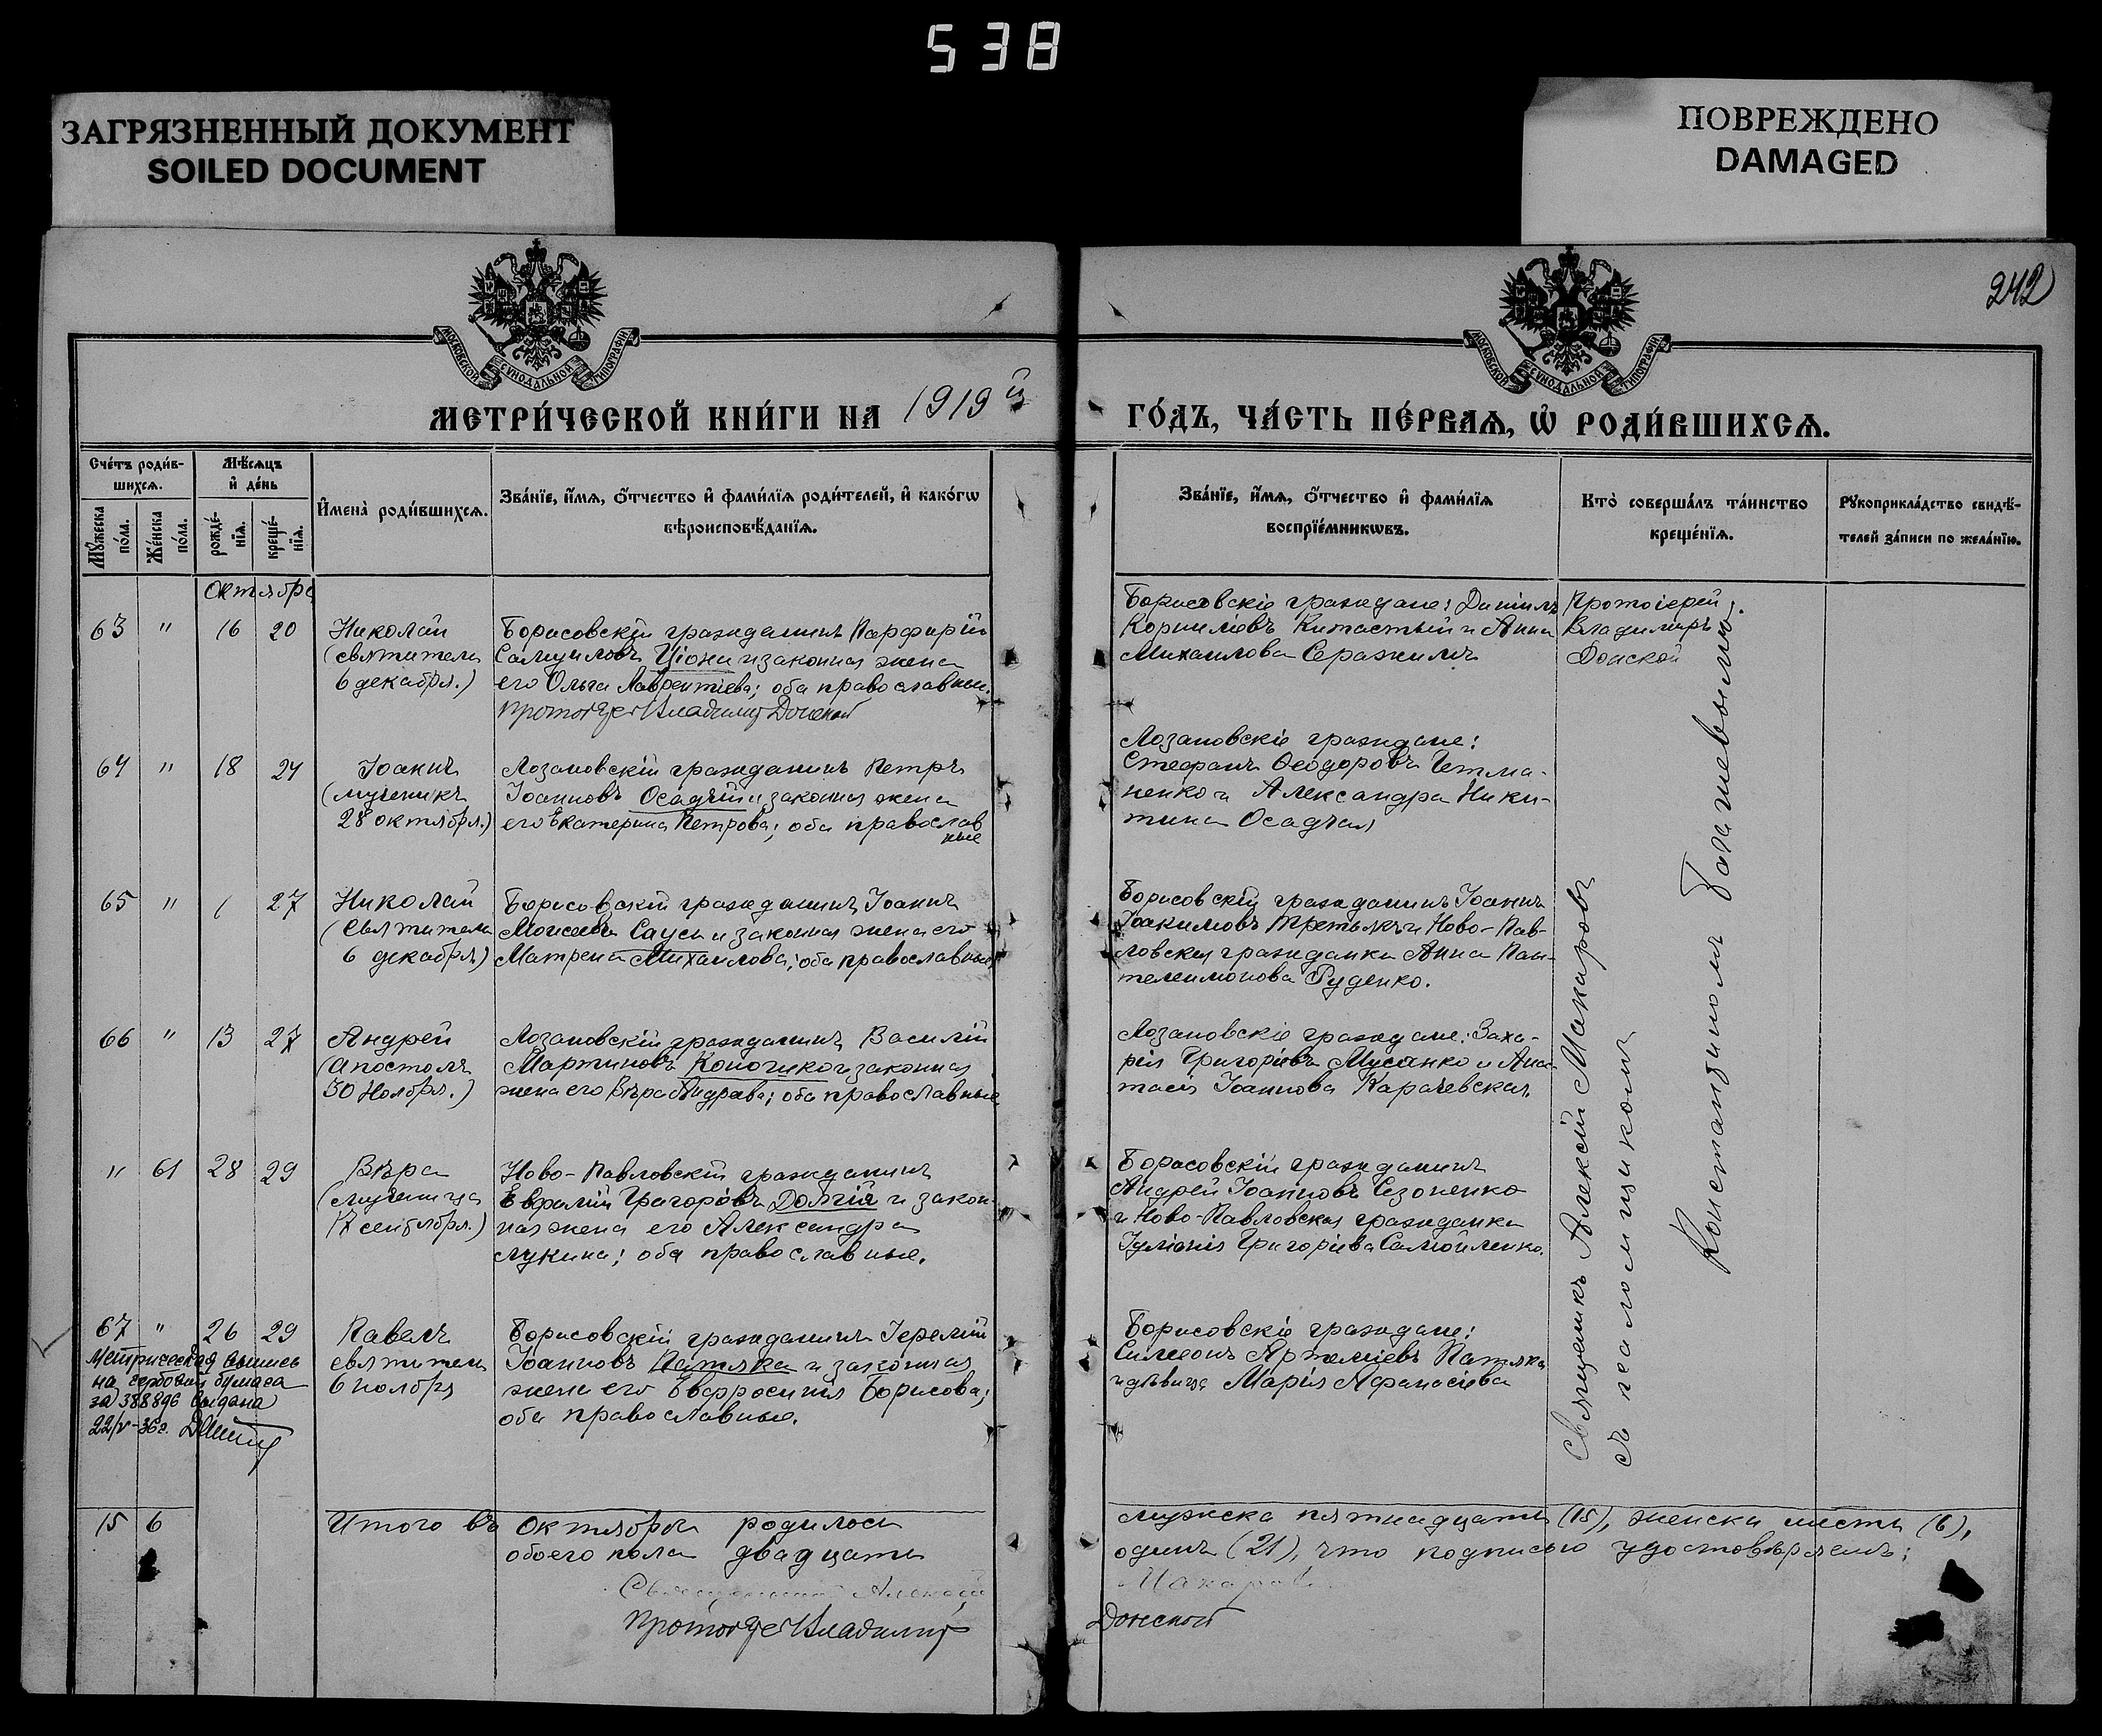 538
ЗАГРЯЗНЕННЫЙ ДОКУМЕНТ
SOILED DOCUMENT
ПОВРЕЖДЕНО
DAMAGED
242
МОСКОВСКОЙ СѴНОДАЛЬНОЙ ТИПОГРАФІИ
МОСКОВСКОЙ СѴНОДАЛЬНОЙ ТИПОГРАФІИ
МЕТРИ́ЧЕСКОЙ КНИ́ГИ НА 1919 й
ГО́ДЪ, ЧА́СТЬ ПЕ́РВАѦ, Ѡ҆ РОДИ́ВШИХСѦ.
Сче́тъ роди́в-
шихсѧ.
Мꙋ́жеска по́ла.
Же́нска по́ла.
Мѣ́сѧцъ
и҆ де́нь
рожде́-
нїѧ.
креще́-
нїѧ.
И҆мена̀ роди́вшихсѧ.
Зва́нїе, и҆́мѧ, ѻ҆́тчество и҆ фами́лїѧ роди́телей, и҆ како́гѡ
вѣроисповѣ́данїѧ.
Зва́нїе, и҆́мѧ, ѻ҆́тчество и҆ фами́лїѧ
воспрїе́мникѡвъ.
Кто̀ соверша́лъ та́инство
креще́нїѧ.
Рꙋкоприкла́дство свидѣ́-
телей за́писи по жела́нїю.
Октября
63 " 16 20
Николай
(святителя
6 декабря.)
Борисовскій гражданинъ Парфирій
Самуиловъ и законная жена
его Ольга Лаврентіева; оба православные.
Протоіерей Владиміръ Донской
Борисовскіе граждане: Даніилъ
Корниліевъ Китастый и Анна
Михаилова
Протоіерей
Владиміръ
Донской
64 " 18 24
Іоаннъ
(мученикъ
28 октября.)
Лозановскій гражданинъ Петръ
Іоанновъ Осадчій и законная жена
его Екатерина Петрова; оба православ
ные
Лозановскіе граждане:
Стефанъ Ѳеодоровъ Гетма-
ненко и Александра Ники-
тина Осадчая
65 " 1 27
Николай
(Святителя
6 декабря)
Борисовскій гражданинъ Іоаннъ
Моисеевъ Саусь и законная жена его
Матрена Михаилова; оба православные
Борисовскій гражданинъ Іоаннъ
Іоакимовъ Третьякъ и Ново-Пав-
ловская гражданка Анна Пан-
телеимонова Руденко.
66 " 13 27
Андрей
(Апостолъ
30 Ноября.)
Лозановскій гражданинъ Василій
Мартиновъ Кононенко и законная
жена его Вѣра Андреева; оба православные
Лозановскіе граждане: Заха-
рія Григоріевъ Мусіенко и Анас-
тасія Іоаннова Карачевская.
" 61 28 29
Вѣра
(мученица
17 сентября.)
Ново-Павловскій гражданинъ
Евфимій Григоріевъ Долгій и закон-
ная жена его Александра
Лукина; оба православные.
Борисовскій гражданинъ
Андрей Іоанновъ Сезоненко
и Ново-Павловская гражданка
Іуліанія Григоріева Самойленко.
67 " 26 29
Павелъ
святителя
6 ноября
Борисовскій гражданинъ Іеремій
Іоанновъ Патяка и законная
жена его Евфросинія Борисова;
оба православные.
Борисовскіе граждане:
Симеонъ Артеміевъ Патяка
и дѣвица Марія Афанасіева
Метрическая выпись
на гербовой бумаге
за 388896 выдана
22/V-36г.
Священникъ Алексій Макаровъ
съ псаломщикомъ
Константиномъ
15 6
Итого въ Октябрѣ родилось
обоего пола двадцать
мужска пятнадцать (15), женска шесть (6),
одинъ (21), что подписью удостовѣряемъ:
Священникъ Алексій
Макаровъ
Протоіерей Владиміръ
Донской